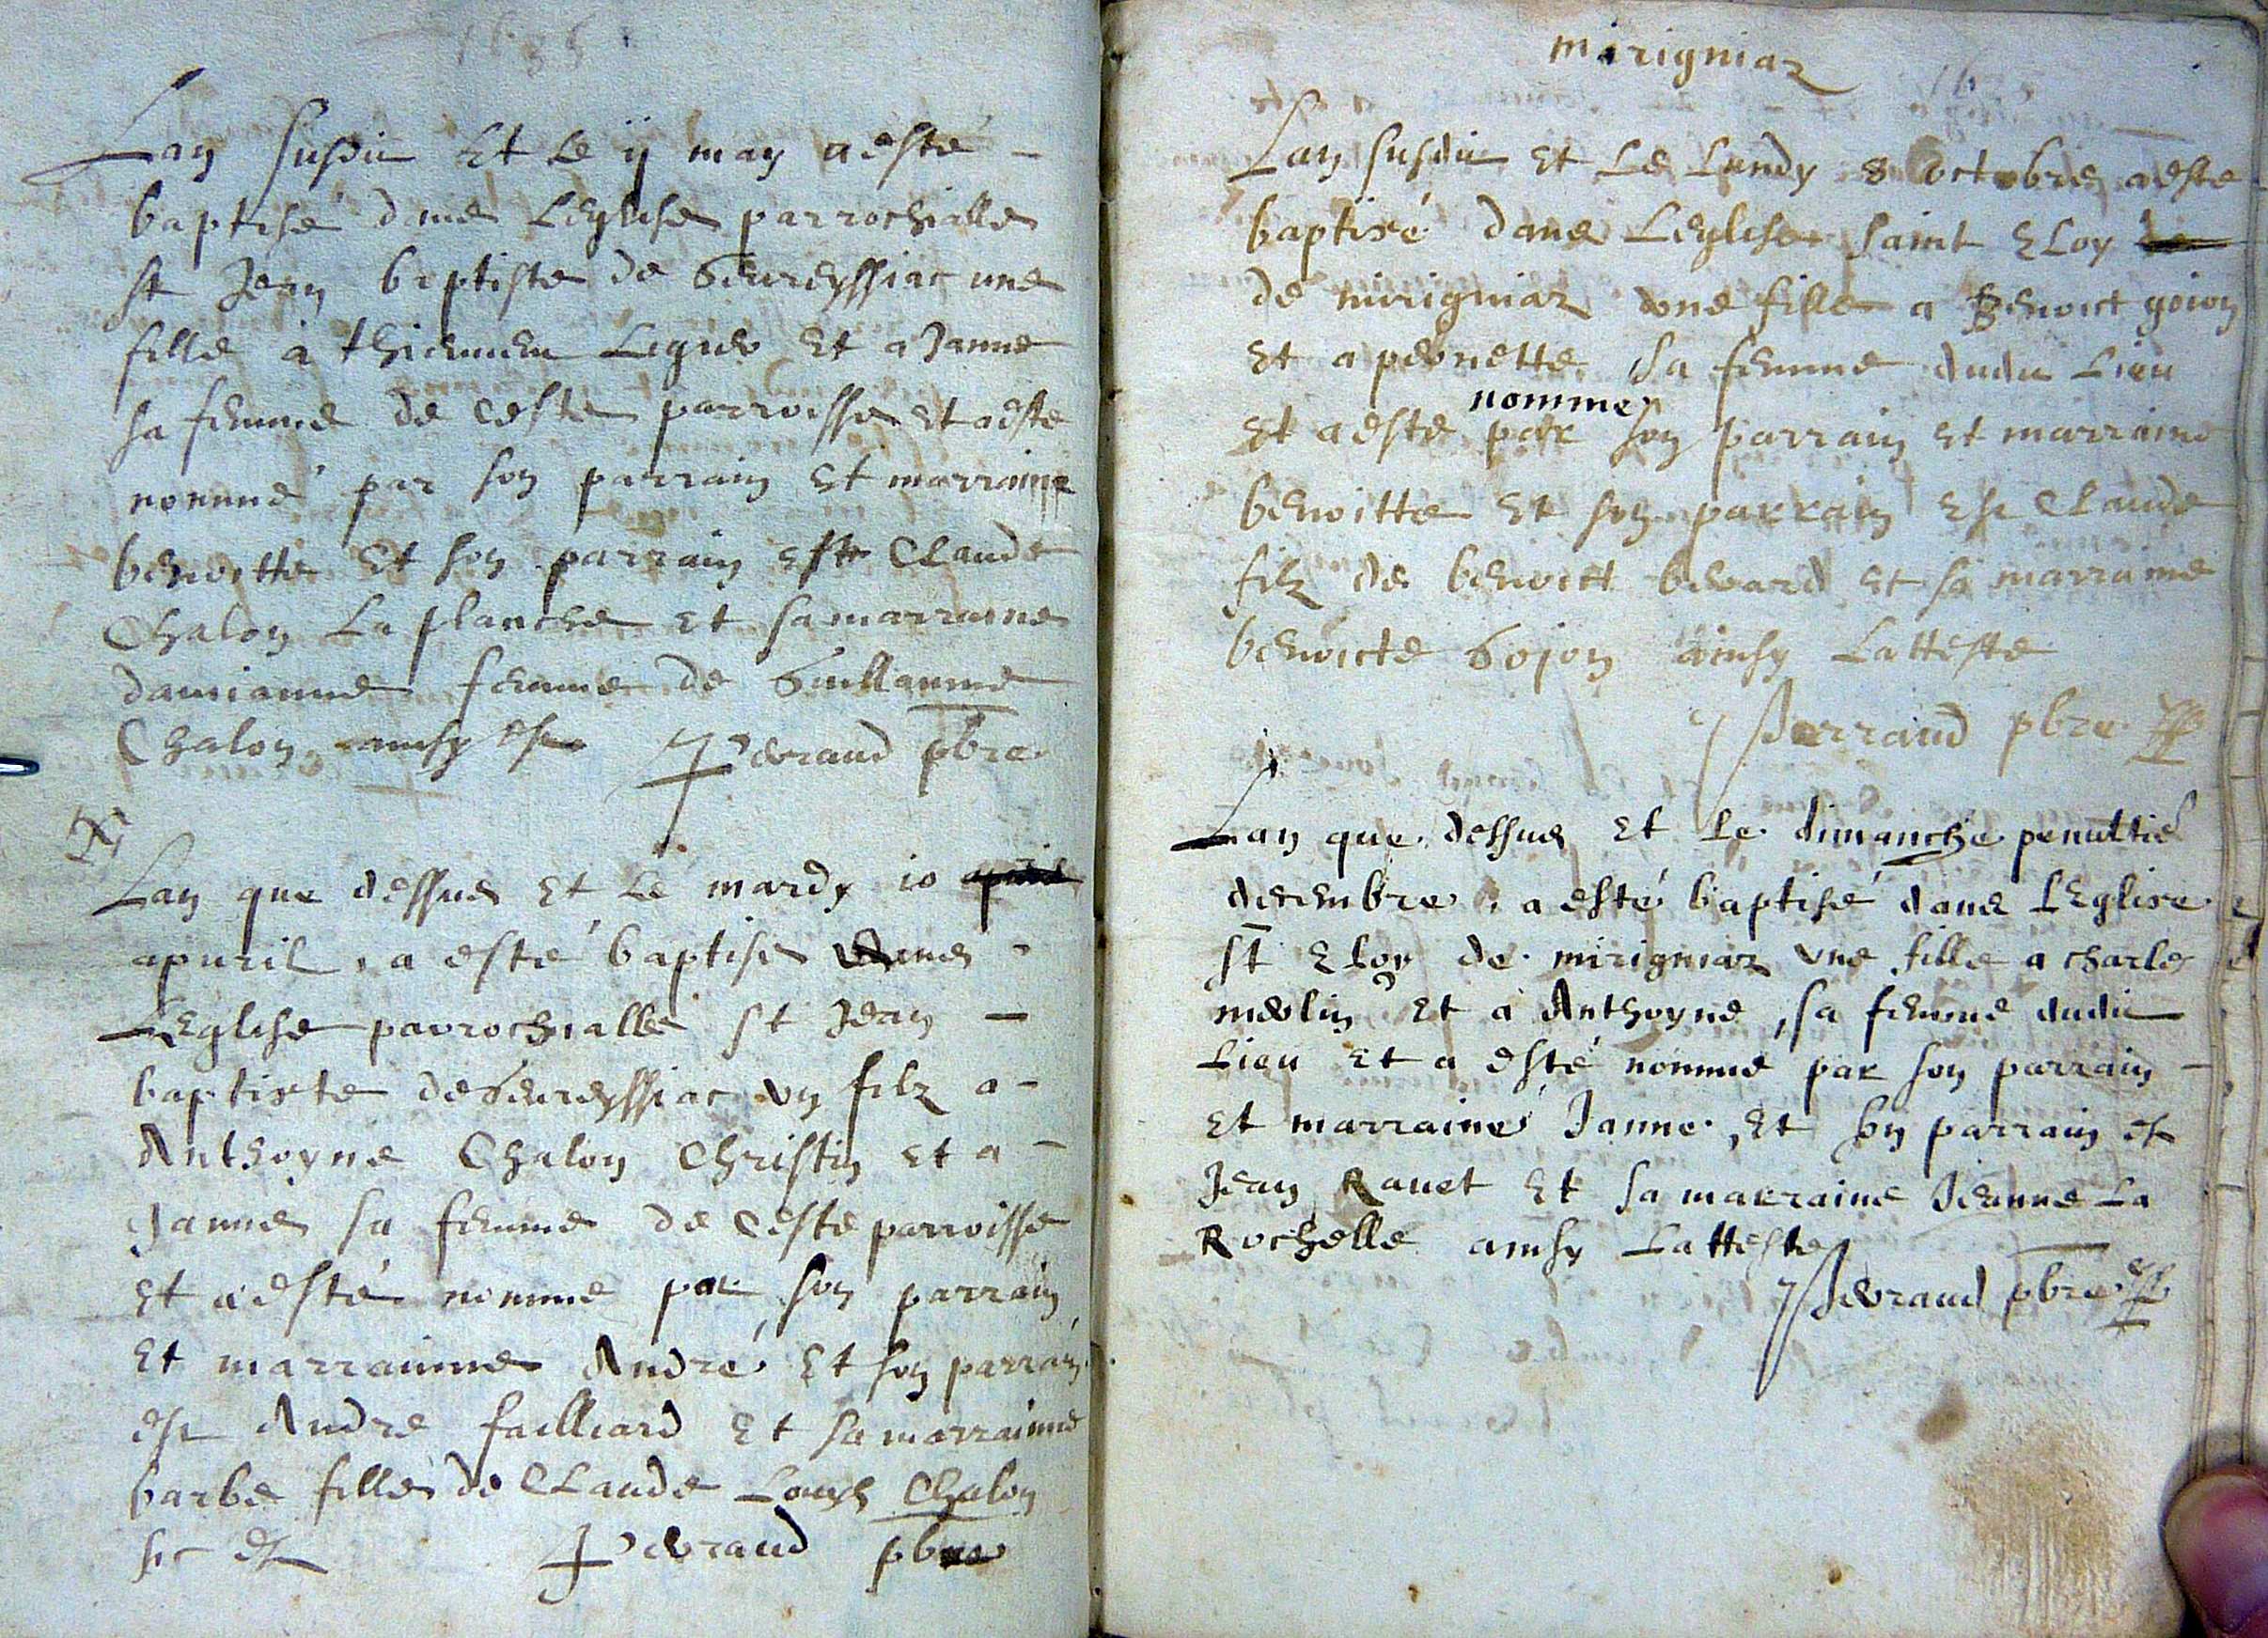 1635
Lan susdit Et Le ij may aesté
baptisé dans Leglise parrochialle
st Jean baptiste de Gevreyssiac une
fille a thiennen Ligier Et a Janne
sa femme de ceste parroisse et aeste
nommé par son parrain et marraine
benoitte Et son parrain este Claude
Chalon La planche Et sa marraine
damianne femme de Guillaume
Chalon ainsy est Perraud pbre
Lan que dessus Et Le mardy 10
apuril a esté baptise dans
LEglise parrochialle st Jean
baptiste de Gevreyssiac un filz a
Anthoyne Chalon Christin et a
Janne sa femme de ceste parroisse
Et a esté nomme par son parrain
Et marrainne André Et son parrain
est Andre failliard Et sa marrainne
barbe fille de Claude Louys Chalon
sic est Perraud pbre
mirigniaz
16
Lan susdit et Le Lundy 8 octobre aeste
baptisé dans Leglise saint Eloy
de mirigniaz une fille a Benoict goion
et a pernette sa femme dudit Lieu
nomme
Et aeste par son parrain et marraine
benoitte Et son parrain est Claude
filz de benoict berard et sa marraine
benoicte Gojon ainsy Latteste
Perraud pbre
Lan que dessus Et Le dimanche penultié
decembre a esté baptisé dans LEglise
st Eloy de mirigniaz vne fille a charles
merlin Et a Anthoyne sa femme dudit
Lieu Et a esté nommé par son parrain
Et marraine Janne, Et son parrain est
Jean Ravet Et sa marraine Jeanne La
Rochelle ainsy Latteste
Perraud pbre